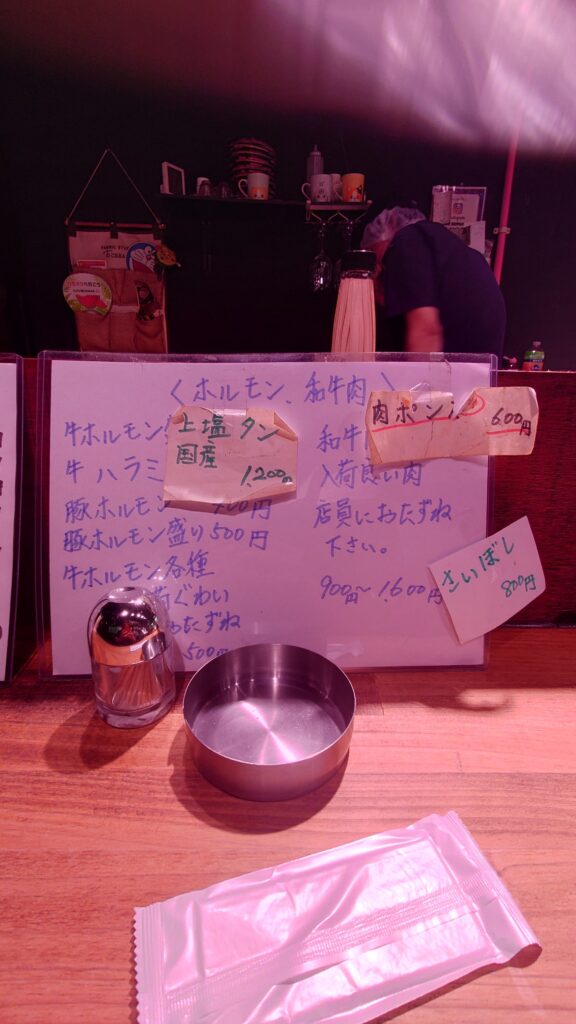 〈ホルモン、和牛肉〉
牛ホルモン
牛ハラミ
豚ホルモン 400円
豚ホルモン盛り500円
牛ホルモン各種
荷ぐわい
おたずね
500円
上塩タン
国産
1,200円
和牛
入荷良い肉
店員におたずね
下さい。
900円～1,600円
肉ポン
600円
さいぼし
800円